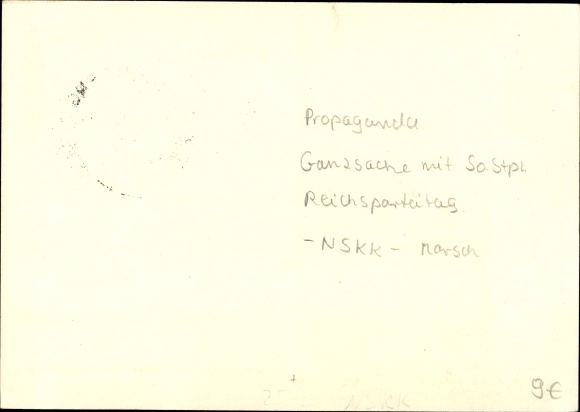 Propaganda
Ganzsache mit So.Stpl.
Reichsparteitag
-NSKK- Marsch
9€